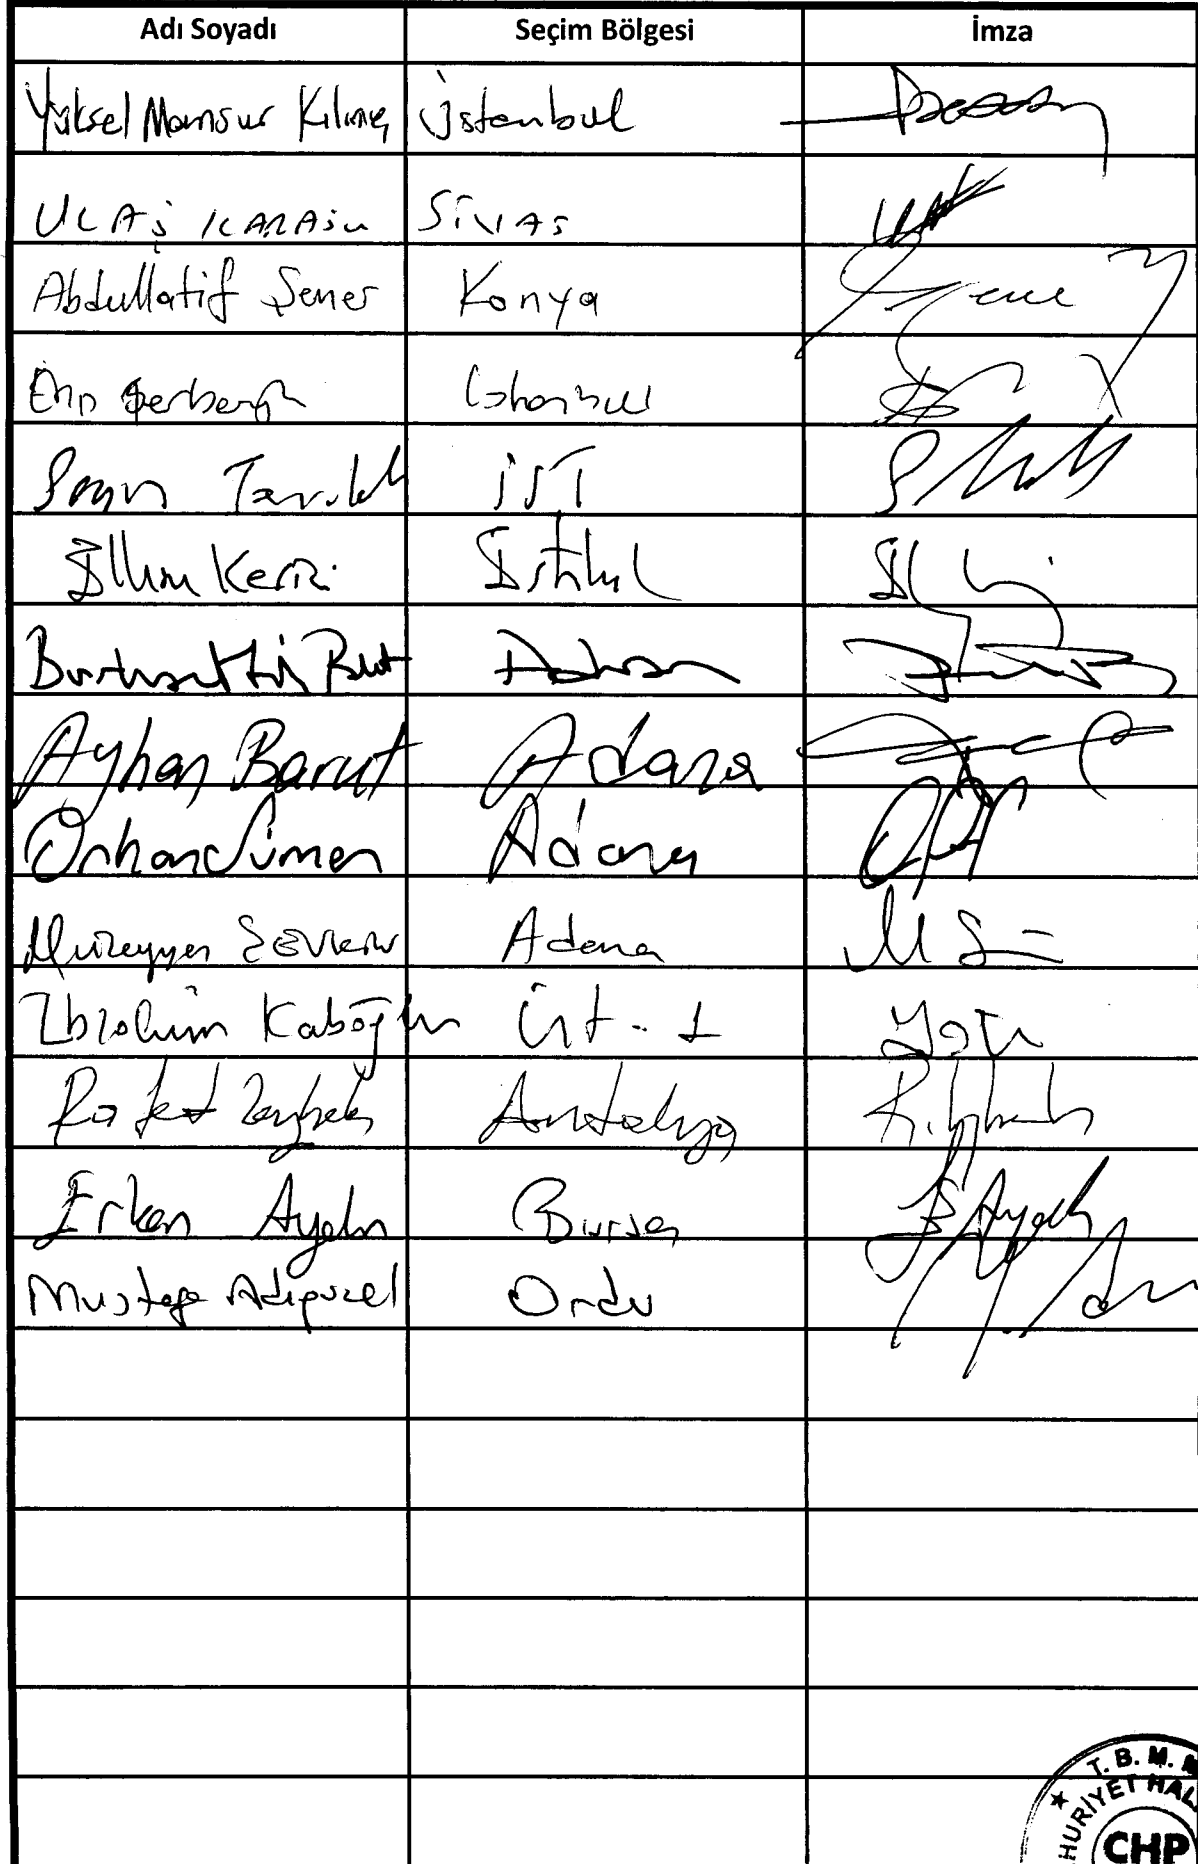 Adı Soyadı Seçim Bölgesi İmza
Yüksel Mansur Kılınç İstanbul
ULAŞ KARASU SİVAS
Abdullatif Şener Konya
İstanbul
Sezgin Tanrıkulu İST
İlhan Kesici İstanbul
Burhanettin Bulut Adana
Ayhan Barut Adana
Orhan Sümer Adana
Müzeyyen ŞEVKİN Adana
İbrahim Kaboğlu İst - 1
Rafet Zeybek Antalya
Erkan Aydın Bursa
Mustafa Adıgüzel Ordu
T. B. M. M
HURİYET HAL
CHP